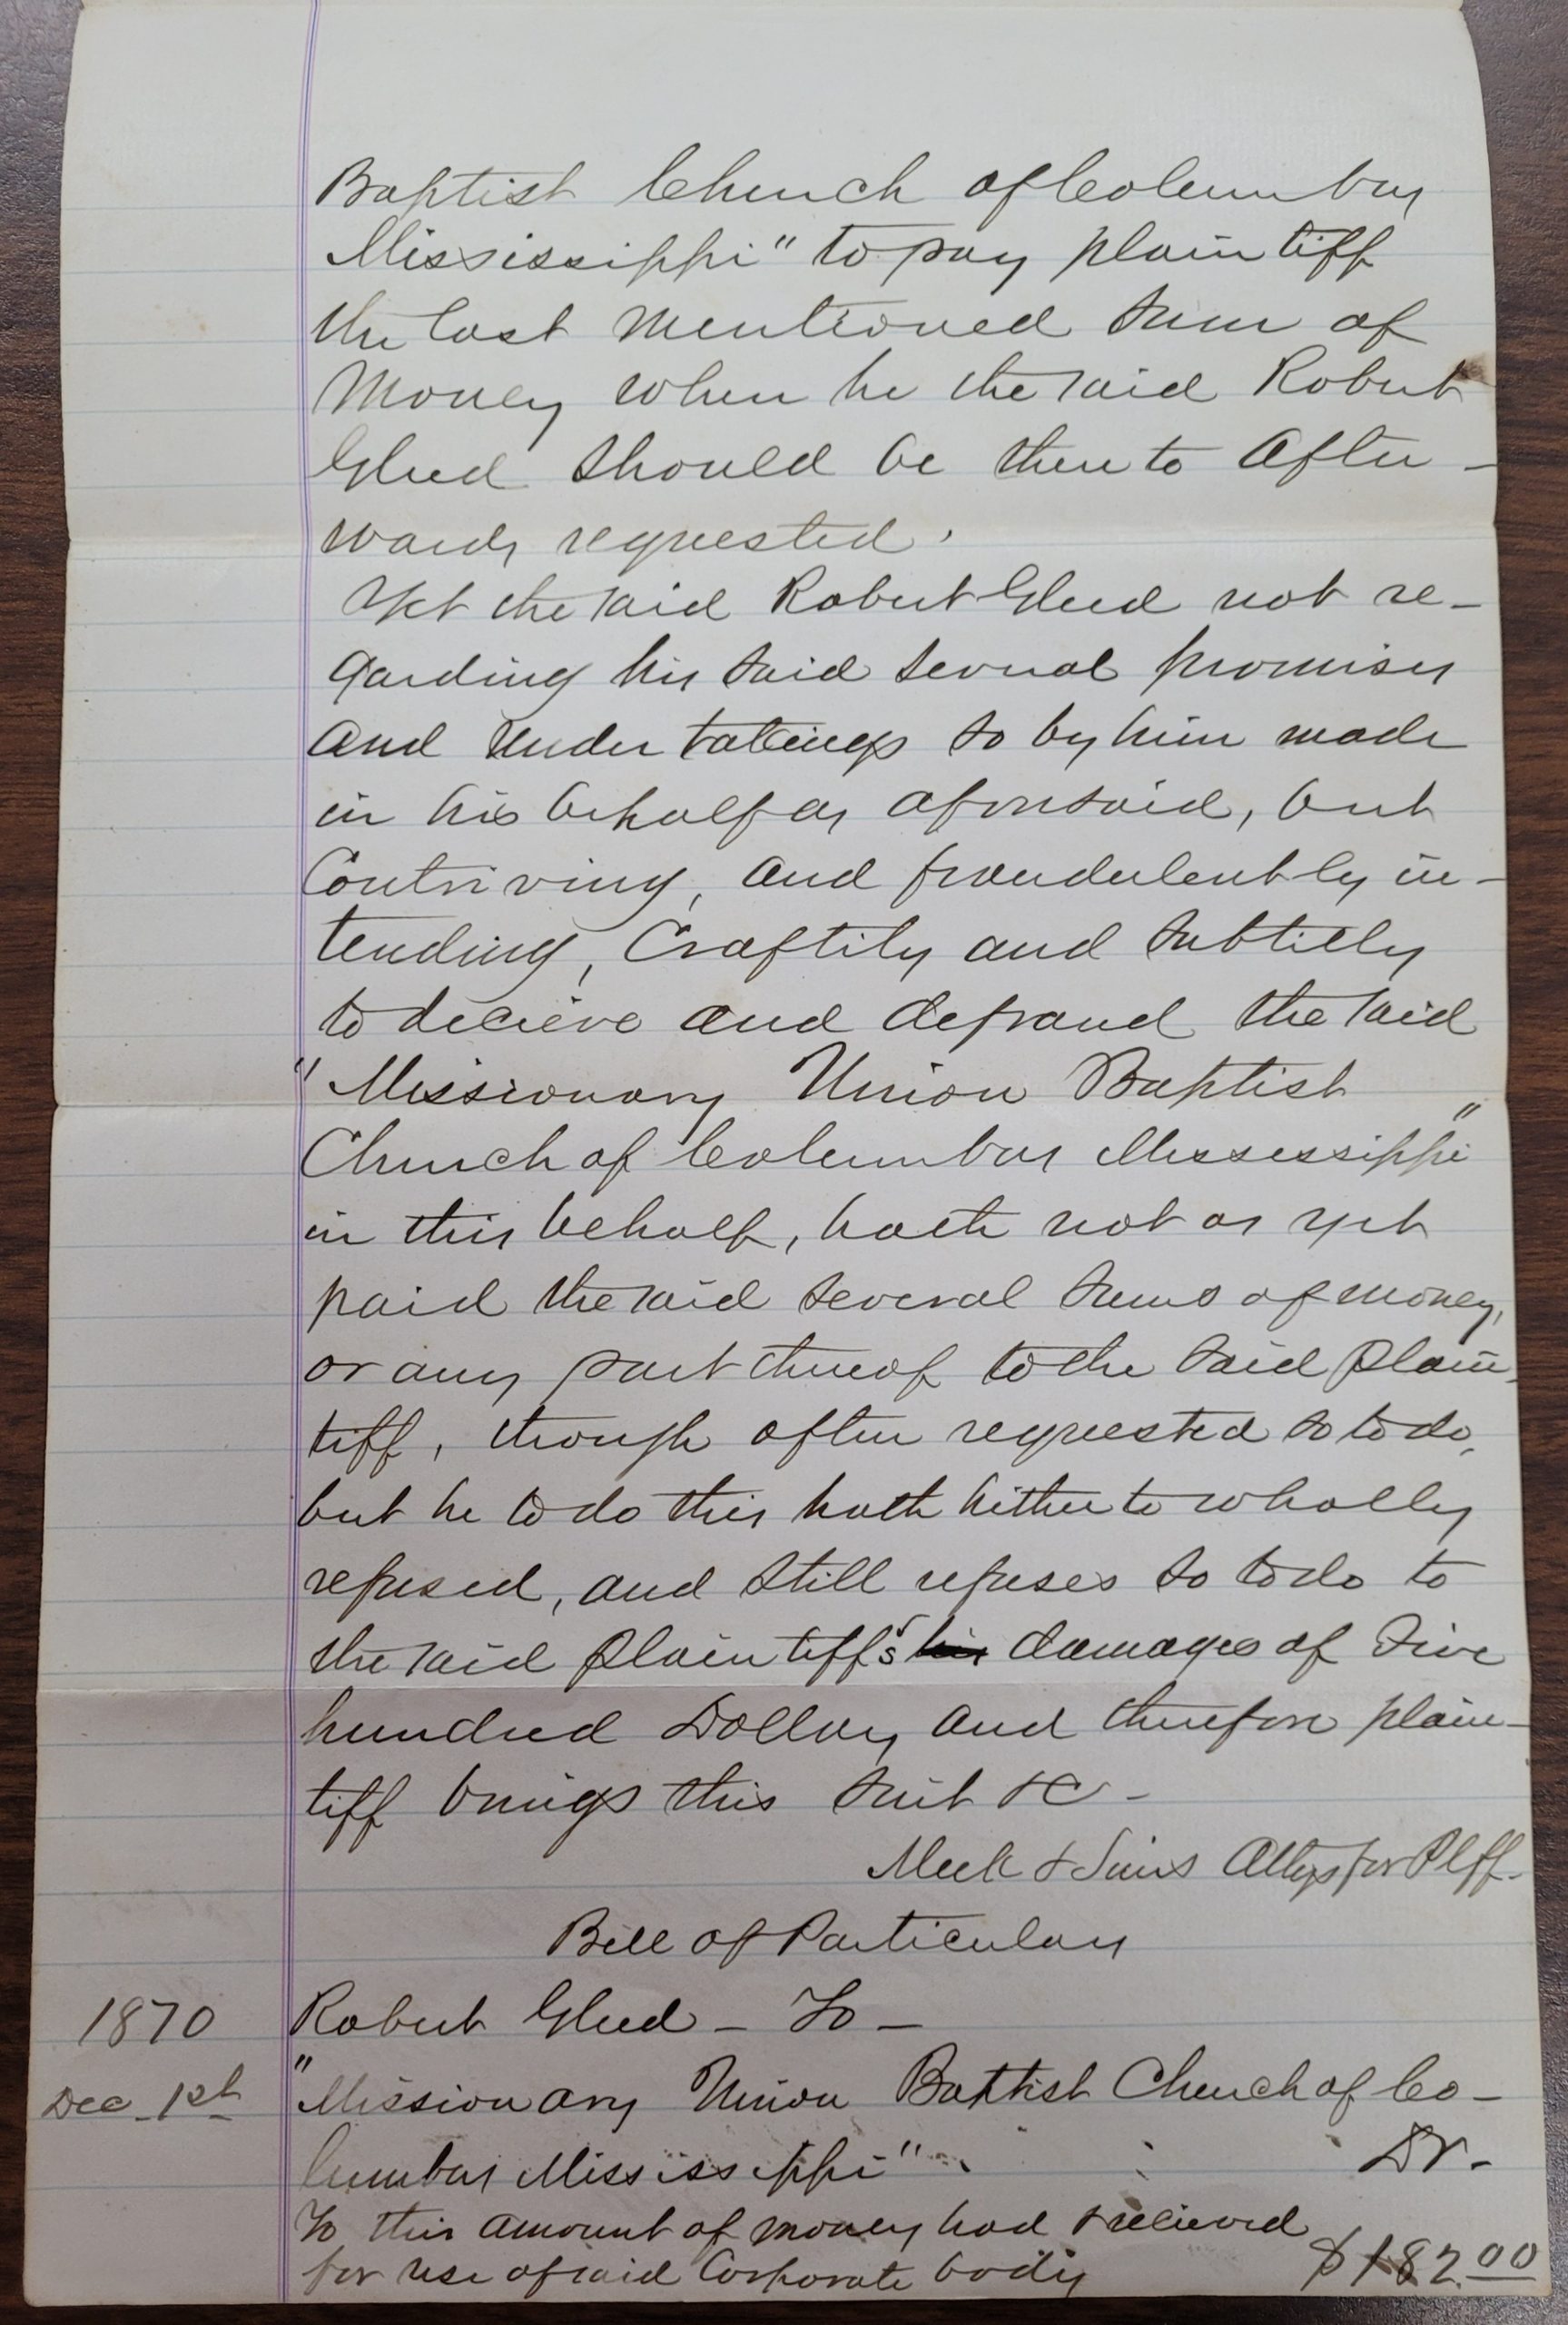 Baptist Church of Columbus
Mississippi" to pay plaintiff
the last mentioned sum of
Money when he the said Robert
Gleed should be thereto after-
wards requested.
Yet the said Robert Gleed not re-
garding his said several promises
and undertakings so by him made
in his behalf as aforesaid, but
Contriving, and fraudulently in-
tending, Craftily and subtilly
to decieve and defraud the said
"Missionary Union Baptist
Church of Columbus Mississippi"
in this behalf, hath not as yet
paid the said several sums of money,
or any part thereof to the said plain-
tiff, though often requested so to do,
but he to do this hath hitherto wholly
refused, and still refuses so to do to
the said plaintiff's his damages of Five
hundred Dollars, and therefore plain-
tiff brings this suit &c-
Meek & Sims Attys for Plff-
Bill of Particulars
1870 Robert Gleed - To -
Dec 1st "Missionary Union Baptist Church of Co-
lumbus Mississippi" Dr.
To this amount of money had & recieved
for use of said Corporate body $182.00